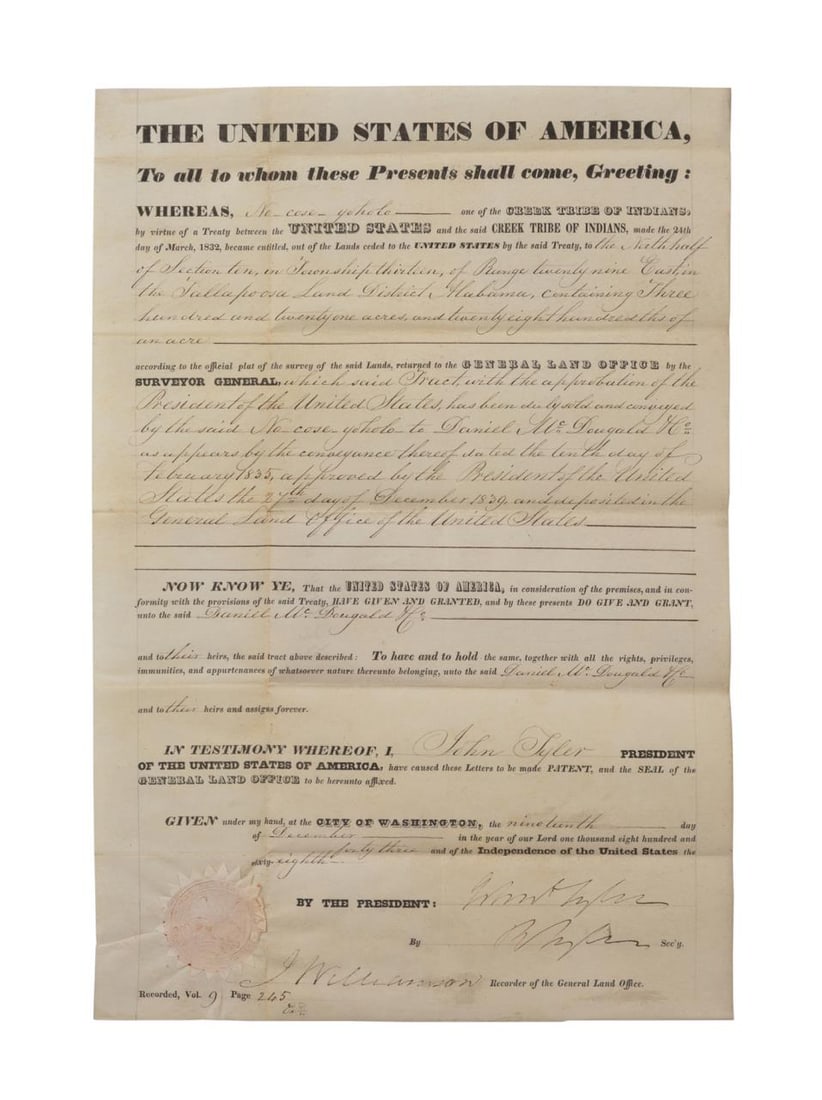 THE UNITED STATES OF AMERICA,
To all to whom these Presents shall come, Greeting:
WHEREAS, No-cose-yoholo one of the CREEK TRIBE OF INDIANS,
by virtue of a Treaty between the UNITED STATES and the said CREEK TRIBE OF INDIANS, made the 24th
day of March, 1832, became entitled, out of the Lands ceded to the UNITED STATES by the said Treaty, to the North half
of Section ten, in Township thirteen, of Range twenty nine East, in
the Tallapoosa Land District, Alabama, containing Three
hundred and twenty one acres, and twenty eight hundredths of
an acre
according to the official plat of the survey of the said Lands, returned to the GENERAL LAND OFFICE by the
SURVEYOR GENERAL, which said Tract, with the approbation of the
President of the United States, has been duly sold and conveyed
by the said No-cose-yoholo to Daniel Mc Dougald & Co
as appears by the conveyance thereof dated the tenth day of
February 1835, approved by the President of the United
States the 27th day of December 1839, and deposited in the
General Land Office of the United States
NOW KNOW YE, That the UNITED STATES OF AMERICA, in consideration of the premises, and in con-
formity with the provisions of the said Treaty, HAVE GIVEN AND GRANTED, and by these presents DO GIVE AND GRANT,
unto the said Daniel Mc Dougald & Co
and to their heirs, the said tract above described: To have and to hold the same, together with all the rights, privileges,
immunities, and appurtenances of whatsoever nature thereunto belonging, unto the said Daniel Mc Dougald & Co
and to their heirs and assigns forever.
IN TESTIMONY WHEREOF, I, John Tyler PRESIDENT
OF THE UNITED STATES OF AMERICA, have caused these Letters to be made PATENT, and the SEAL of the
GENERAL LAND OFFICE to be hereunto affixed.
GIVEN under my hand, at the CITY OF WASHINGTON, the nineteenth day
of December in the year of our Lord one thousand eight hundred and
forty three and of the Independence of the United States the
sixty-eighth
BY THE PRESIDENT: Tyler
By R Tyler Sec'y.
J Williamson Recorder of the General Land Office.
Recorded, Vol. 9 Page 245